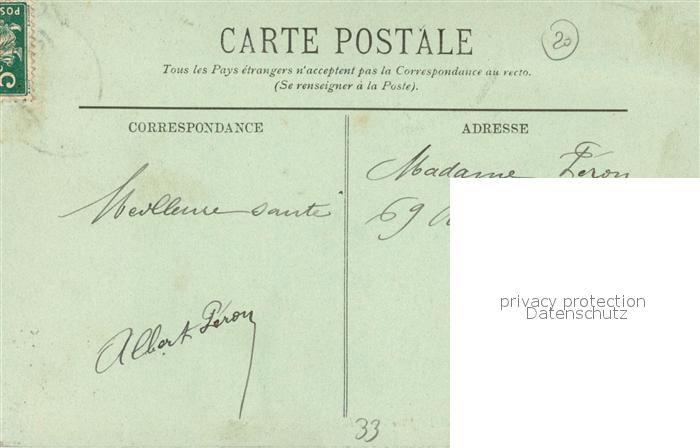 POS
5
20
CARTE POSTALE
Tous les Pays étrangers n'acceptent pas la Correspondance au recto.
(Se renseigner à la Poste).
CORRESPONDANCE
Meilleure santé
Albert Féron
ADRESSE
Madame Féron
69
privacy protection
Datenschutz
33